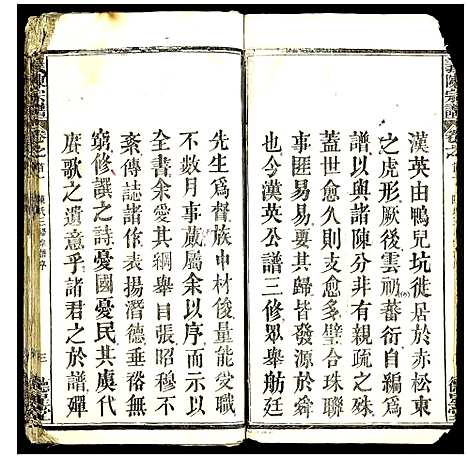 漢英由鴨兒坑徙居於赤松東
之虎形厥後雲礽蕃衍自編爲
譜以與諸陳分非有親疏之殊
蓋世愈久則支愈多璧合珠聯
事匪易易要其歸皆發源於舜
也今漢英公譜三修眾舉舫廷
先生爲督族中材俊量能受職
不數月事蕆屬余以序而示以
全書余愛其綱舉目張昭穆不
紊傳誌諸作表揚潛德垂裕無
窮修譔之詩憂國憂民其虞代
賡歌之遺意乎諸君之於譜殫